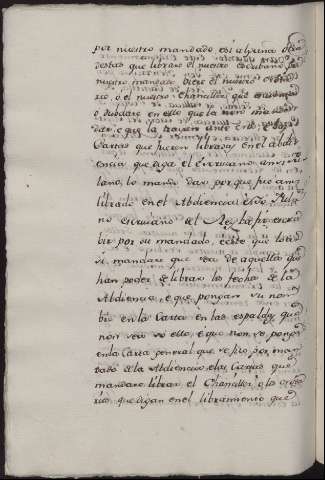 por nuestro mandado, e si alguna
destas que librare el nuestro escribano por
nuestro mandado el nuestro
rio o el nuestro Chanciller que
o dubdare en ello que la non
dar, e que la trayan ante e
Cartas que fueren libradas en el abdi
encia que diga el Escrivano
lano, lo mandó dar porque fue
librada en el Abdiencia: e Yo Fula
no escrivano del Rey la fiz escre
bir por su mandado, e este que lo
mandare que sea de aquellos que
han poder de librar los fechos de la
Abdiencia, e que pongan su nom
bre en la Carta en las espaldas que
non sea so ello, e que non se ponga
en la Carta general que se fizo por man
dado de la Abdiencia, e las Cartas que
mandare librar el Chanciller, o los
rios que digan en el libramiento que